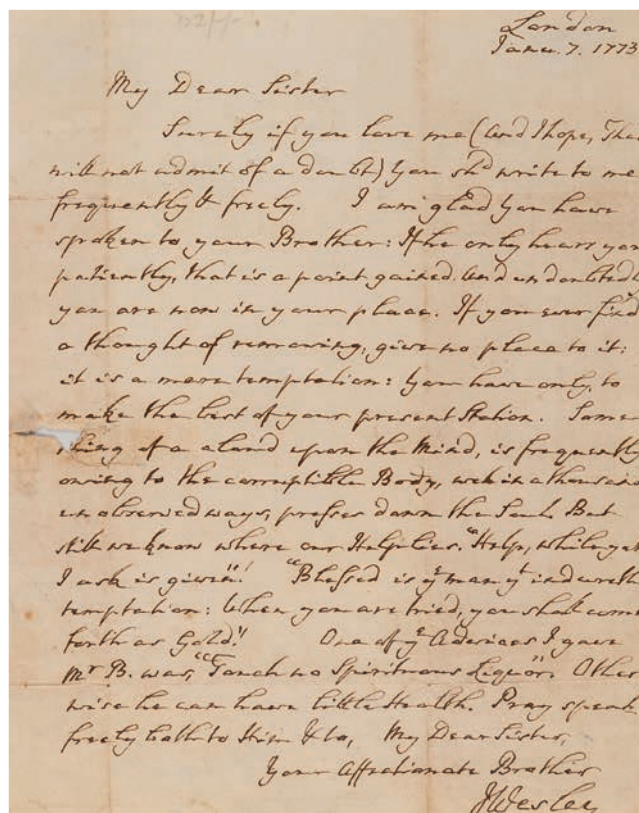 London
Janu. 7. 1773
My Dear Sister
Surely if you love me (And I hope, That
will not admit of a doubt) you shd write to me
frequently & freely. I am glad you have
spoken to your Brother: If he only hears you
patiently, that is a point gained. And undoubtedly
you are now in your place. If you ever find
a thought of removing, give no place to it:
it is a mere temptation: You have only, to
make the best of your present Station. Some
thing of a cloud upon the Mind, is frequently
owing to the corruptible Body, wch in a thousand
unobserved ways, presses down the Soul. But
still we know where our Help lies. "Help, while yet
I ask is given"! "Blessed is ye man yt indureth
temptation: When you are tried, you shall come
forth as Gold"! One of ye Advices I gave
Mr B. was, "Touch no Spirituous Liquor". Other
wise he can have little Health. Pray speak
freely both to Him & to, My Dear Sister,
Your Affectionate Brother
JWesley